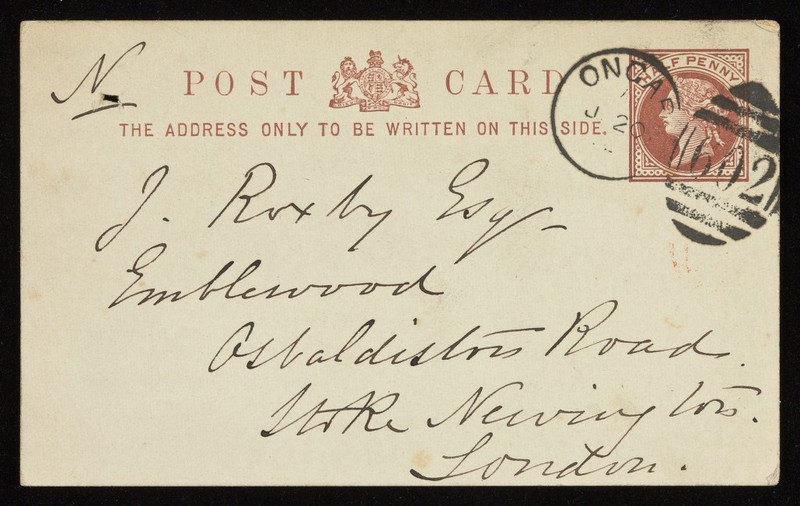 N
POST CARD
HALF PENNY
ONGAR
J 20
602
THE ADDRESS ONLY TO BE WRITTEN ON THIS SIDE.
J. Roxby Esq
Emblewood
Osbaldiston Road.
Stoke Newington.
London.